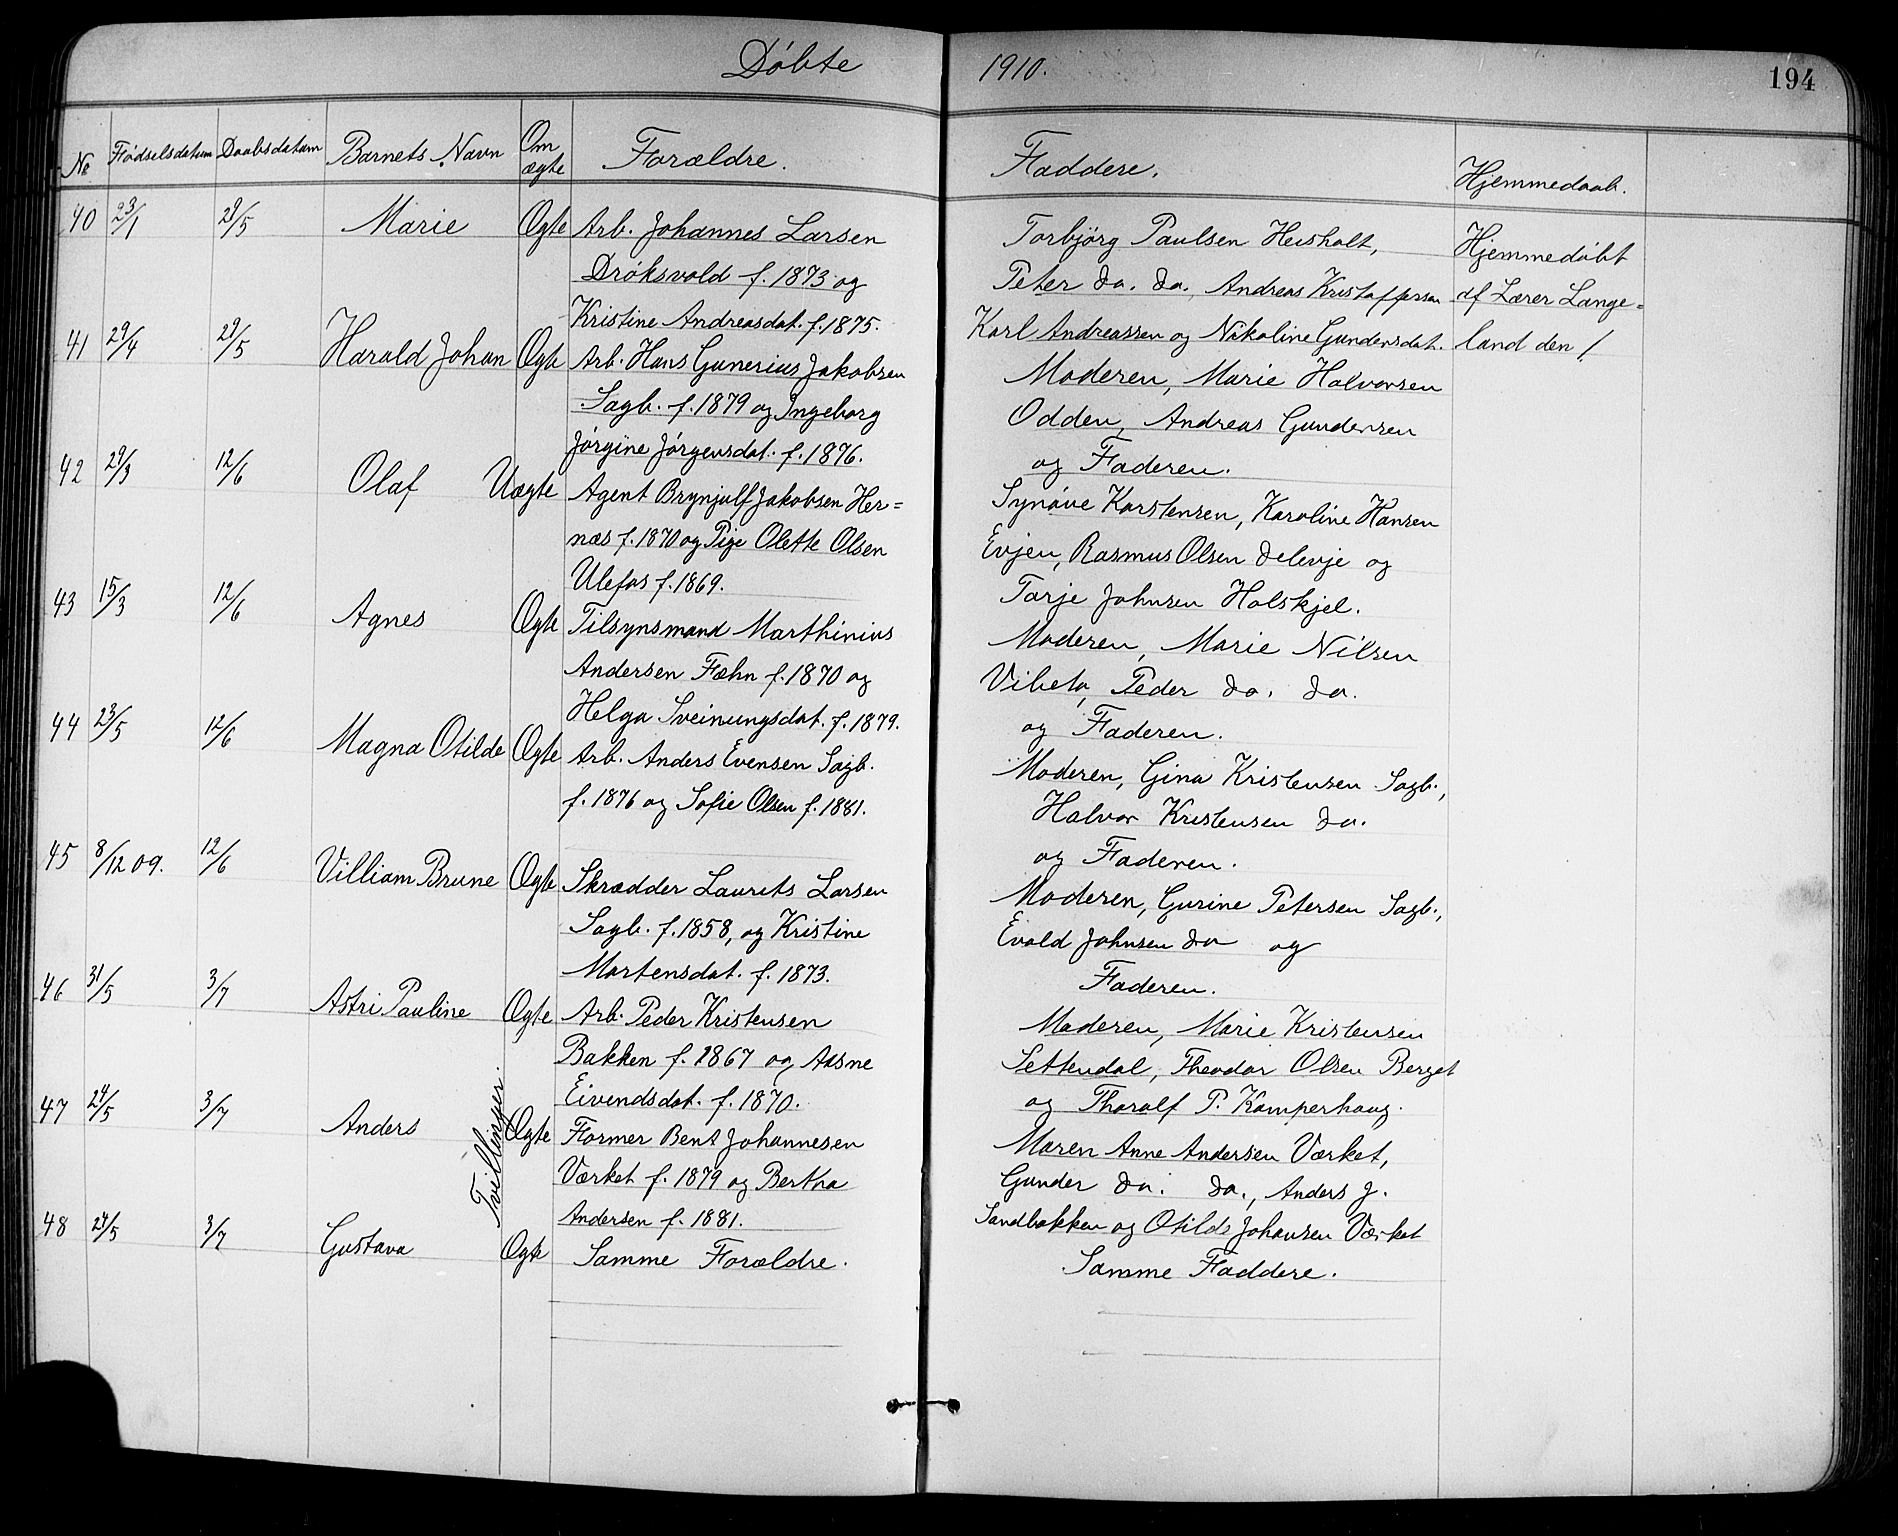 Døbte 1910. 194
No Fødselsdatum Daabsdatum Barnets Navn Om ægte Forældre. Faddere. Hjemmedaab.
40 23/1 29/5 Marie Ægte Arb. Johannes Larsen
Drøksvold f. 1873 og
Kristine Andreasdat. f. 1875.
Torbjørg Paulsen Heisholt,
Peter do. do., Andreas Kristoffersen
Karl Andreassen og Nikoline Gundersdat.
Hjemmedøbt
af Lærer Lange=
land den /
41 29/4 29/5 Harald Johan Ægte Arb. Hans Gunerius Jakobsen
Sagb. f. 1879 og Ingeborg
Jørgine Jørgensdat. f. 1876.
Moderen, Marie Halvorsen
Odden, Andreas Gundersen
og Faderen.
42 29/3 12/6 Olaf Uægte Agent Brynjulf Jakobsen Her=
næs f. 1870 og Pige Olette Olsen
Ulefos f. 1869.
Synøve Karstensen, Karoline Hansen
Evjen, Rasmus Olsen Delevje og
Tarje Johnsen Holskjel.
43 15/3 12/6 Agnes Ægte Tilsynsmand Marthinius
Andersen Fæhn f. 1870 og
Helga Sveinungsdat. f. 1879.
Moderen, Marie Nilsen
Vibeto, Peder do. do.
og Faderen.
44 23/5 12/6 Magna Otilde Ægte Arb. Anders Evensen Sagb.
f. 1876 og Sofie Olsen f. 1881.
Moderen, Gina Kristensen Sagb.,
Halvor Kristensen do.
og Faderen.
45 8/12 09. 12/6 Villiam Brune Ægte Skrædder Laurits Larsen
Sagb. f. 1858, og Kristine
Mortensdat. f. 1873.
Moderen, Gurine Petersen Sagb.,
Evald Johnsen do og
Faderen.
46 31/5 3/7 Astri Pauline Ægte Arb. Peder Kristensen
Bakken f. 1867 og Aasne
Eivendsdat. f. 1870.
Moderen, Marie Kristensen
Settendal, Theodor Olsen Berget
og Thoralf P. Kamperhaug.
Tvillinger.
47 24/5 3/7 Anders Ægte Former Bent Johannesen
Værket f. 1879 og Bertha
Andersen f. 1881.
Maren Anne Andersen Værket,
Gunder do. do., Anders J.
Sandbakken og Otilde Johansen Værket
48 24/5 3/7 Gustava Ægte Samme Forældre.
Samme Faddere.